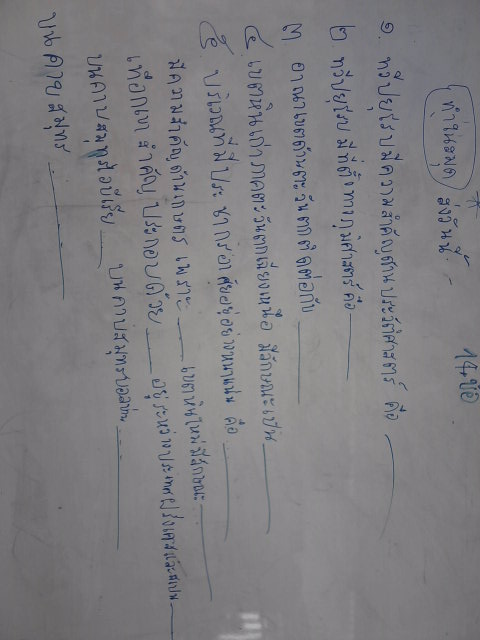 14 ข้อ
ทำในสมุด
ส่งวันนี้
๑. ทวีปยุโรปมีความสำคัญด้านประวัติศาสตร์ คือ
๒. ทวีปยุโรป มีที่ตั้งทางภูมิศาสตร์คือ
๓ อาณาเขตด้านตะวันตกติดต่อกับ
๔ เขตหินเก่าภาคตะวันตกเฉียงเหนือ มีลักษณะเป็น
๕ บริเวณที่มีประชากรอาศัยอยู่อย่างหนาแน่น คือ
มีความสำคัญด้านเกษตร เพราะ เขตหินใหม่มีลักษณะ
เทือกเขา สำคัญ ประกอบด้วย อยู่ระหว่างประเทศฝรั่งเศสและสเปน
บนคาบสมุทรไอบีเรีย บนคาบสมุทรบอลข่าน
บนคาบสมุทร